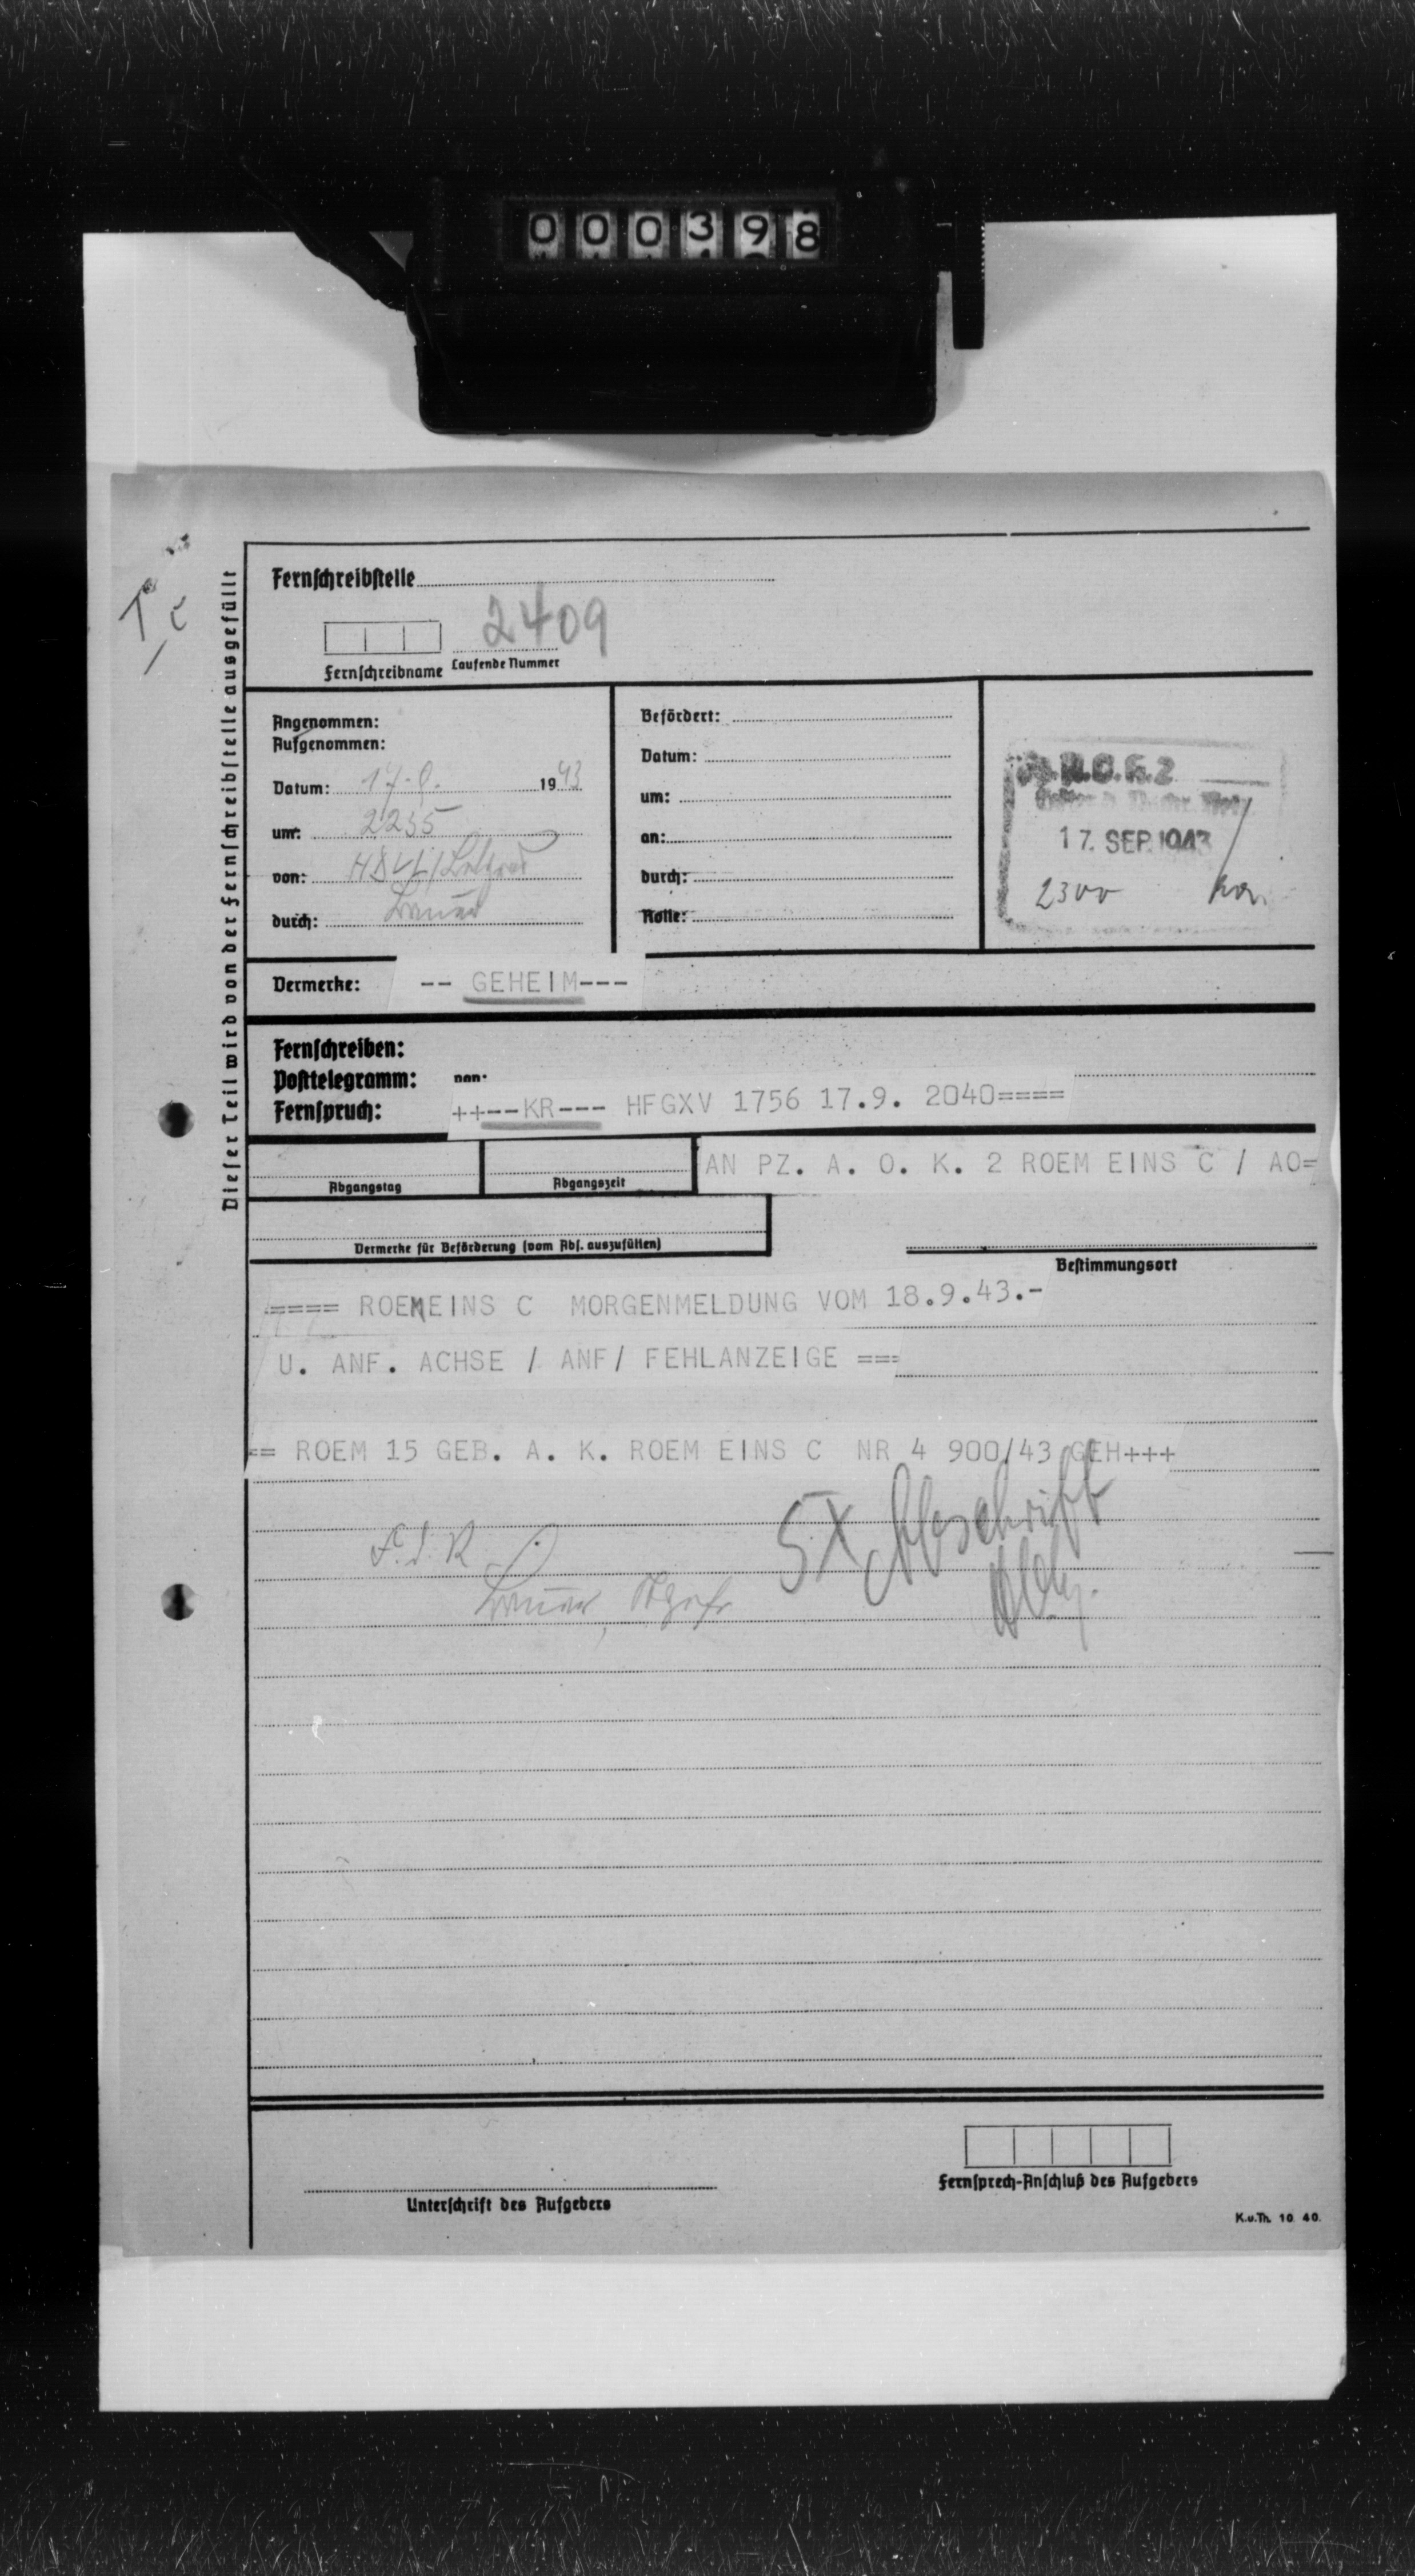 000398
Fernschreibstelle
2409
Fernschreibname Laufende Nummer
Dieser Teil wird von der Fernschreibstelle ausgefüllt
Angenommen:
Aufgenommen:
Datum: 17.9. 1943
um: 2235
von:
durch:
Befördert:
Datum:
um:
an:
durch:
Rolle:
17. SEP. 1943
2300
Vermerke: -- GEHEIM---
Fernschreiben:
Posttelegramm: von:
Fernspruch: ++---KR--- HFGXV 1756 17.9. 2040====
AN PZ. A. O. K. 2 ROEM EINS C / AO=
Abgangstag Abgangszeit
Vermerke für Beförderung (vom Abs. auszufüllen)
Bestimmungsort
==== ROEMEINS C MORGENMELDUNG VOM 18.9.43.-
U. ANF. ACHSE / ANF/ FEHLANZEIGE ===
== ROEM 15 GEB. A. K. ROEM EINS C NR 4 900/43 GEH+++
5x Abschrift
F.d.R.
Unterschrift des Aufgebers
Fernsprech-Anschluß des Aufgebers
K.u.Th. 10 40.